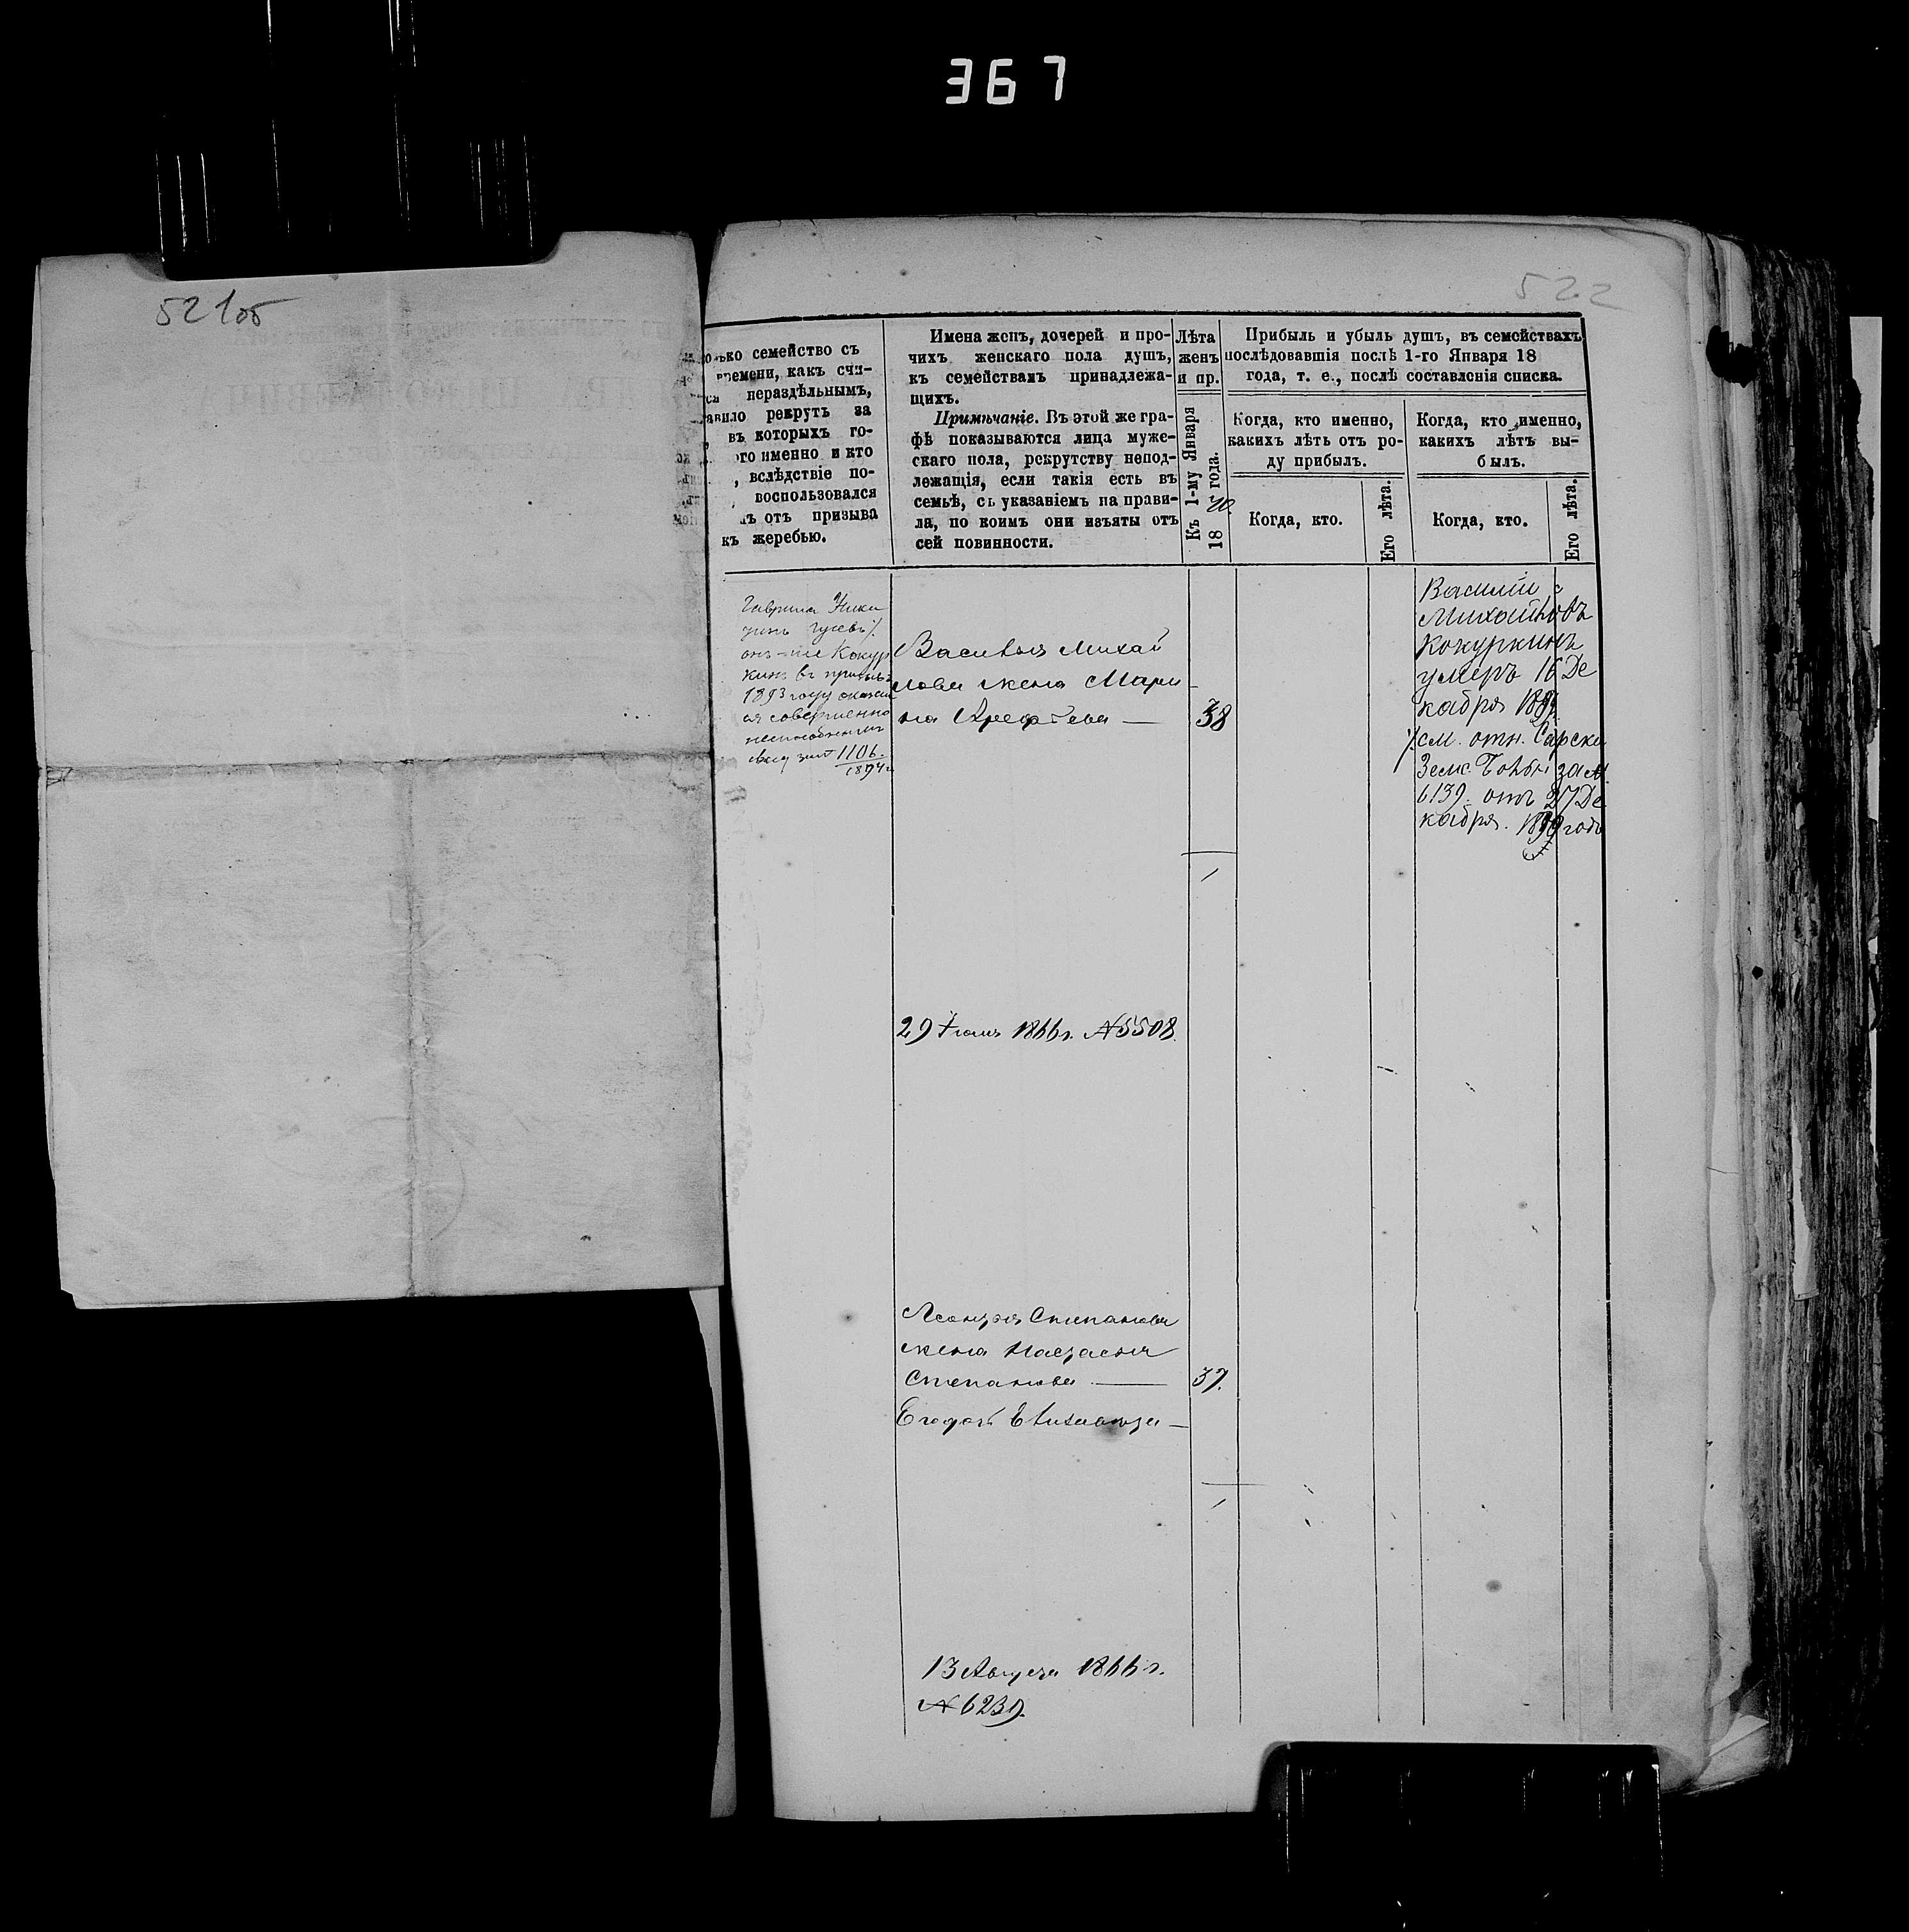 367
521об
522
лько семейство съ
времени, какъ счи-
ся нераздѣльнымъ,
авило рекрутъ за
въ которыхъ го-
ого именно и кто
, вслѣдствіе по-
воспользовался
ъ отъ призыва
къ жеребью.
Имена женъ, дочерей и про-
чихъ женскаго пола душъ,
къ семействамъ принадлежа-
щихъ.
Примѣчаніе. Въ этой же гра-
фѣ показываются лица муже-
скаго пола, рекрутству непод-
лежащія, если такія есть въ
семьѣ, съ указаніемъ на прави-
ла, по коимъ они изъяты отъ
сей повинности.
Лѣта
женъ
и пр.
Къ 1-му Января
18 70 года.
Прибыль и убыль душъ, въ семействахъ
послѣдовавшія послѣ 1-го Января 18
года, т. е., послѣ составленія списка.
Когда, кто именно,
какихъ лѣтъ отъ ро-
ду прибылъ.
Когда, кто.
Его лѣта.
Когда, кто именно,
какихъ лѣтъ вы-
былъ.
Когда, кто.
Его лѣта.
Гаврила Ники
Гусевъ
онъ-же Кокур
кинъ въ призывъ
1893 году оказал
ся совершенно
неспособнымъ
1106
1894
Василья Михай
лова жена Мари
на Арефьева — 38
1
29 1866 г. №5508.
Василій
Михайловъ
Кокуркинъ
умеръ 16 Де
кабря
см. отн. Сарска
за №
6139. отъ 27 Де
кабря. году
Леонтья Степанова
жена Настасья
Степанова — 37.
1
13 Августа 1866 г.
№ 6239.